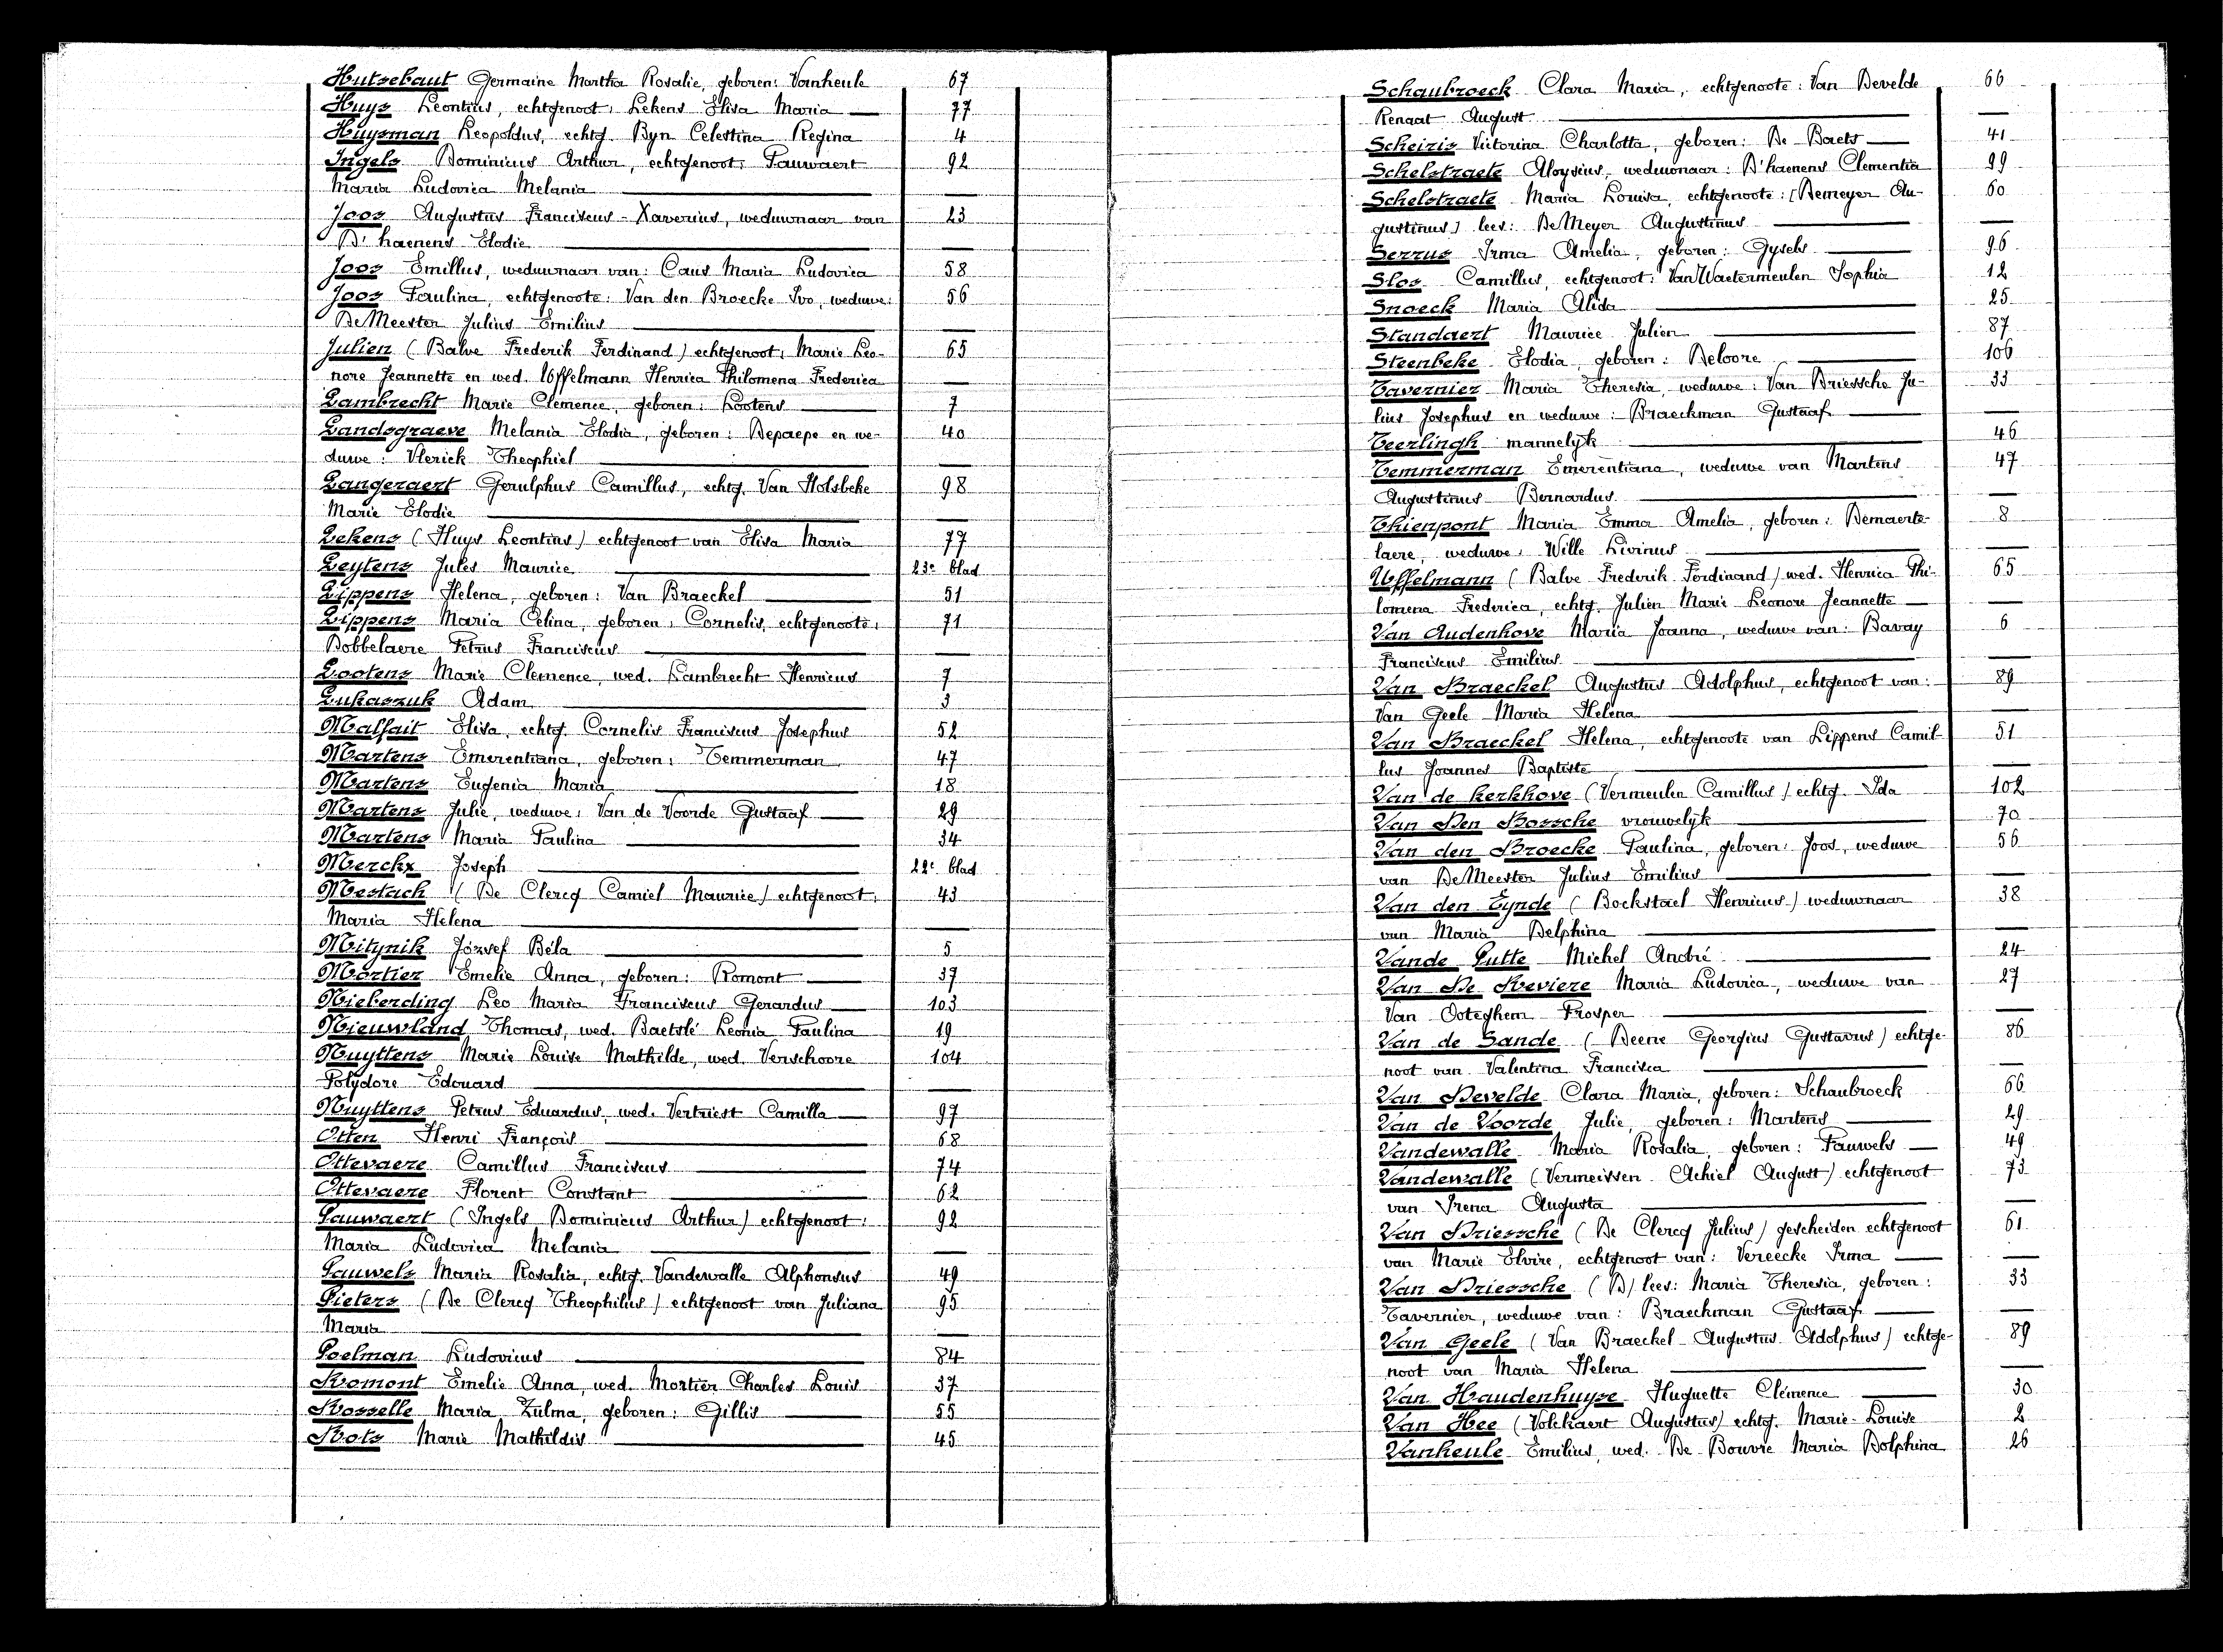 Hutsebaut Germaine Martha Rosalie, geboren: Vanheule 67
Huys Leontius, echtgenoot: Lekens Elisa Maria 77
Huysman Leopoldus, echtg. Byn Celestina Regina 4
Ingels Dominicus Arthur, echtgenoot: Pauwaert 92
Maria Ludovica Melania
Joos Augustus Franciscus-Xaverius, weduwnaar van 23
D'haenens Elodie
Joos Emillus, weduwnaar van: Caus Maria Ludovica 58
Joos Paulina, echtgenoote: Van den Broecke Ivo, weduwe: 56
De Meester Julius Emilius
Julien (Balve Frederik Ferdinand) echtgenoot: Marie Leo- 65
nore Jeannette en wed. Uffelmann Henrica Philomena Frederica
Lambrecht Marie Clemence, geboren: Lootens 7
Landsgraeve Melania Elodia, geboren: Depaepe en we- 40
duwe: Vlerick Theophiel
Langeraert Gerulphus Camillus, echtg. Van Holsbeke 98
Marie Elodie
Lekens (Huys Leontius) echtgenoot van Elisa Maria 77
Leytens Jules Maurice 23e blad
Lippens Helena, geboren: Van Braeckel 51
Lippens Maria Celina, geboren: Cornelis, echtgenoote: 71
Dobbelaere Petrus Franciscus
Lootens Marie Clemence, wed. Lambrecht Henricus 7
Lukaszuk Adam 3
Malfait Elisa, echtg. Cornelis Franciscus Josephus 52
Martens Emerentiana, geboren: Temmerman 47
Martens Eugenia Maria 18
Martens Julie, weduwe: Van de Voorde Gustaaf 29
Martens Maria Paulina 34
Merckx Joseph 22e blad
Mestach (De Clercq Camiel Maurice) echtgenoot: 43
Maria Helena
Mitynik József Béla 5
Mortier Emelie Anna, geboren: Romont 37
Nieberding Leo Maria Franciscus Gerardus 103
Nieuwland Thomas, wed. Baetslé Leonia Paulina 19
Nuyttens Marie Louise Mathilde, wed. Verschoore 104
Polydore Edouard
Nuyttens Petrus Eduardus, wed. Vertriest Camilla 97
Otten Henri François 68
Ottevaere Camillus Franciscus 74
Ottevaere Florent Constant 62
Pauwaert (Ingels Dominicus Arthur) echtgenoot: 92
Maria Ludovica Melania
Pauwels Maria Rosalia, echtg. Vandewalle Alphonsus 49
Pieters (De Clercq Theophilus) echtgenoot van Juliana 95
Maria
Poelman Ludovicus 84
Romont Emelie Anna, wed. Mortier Charles Louis 37
Rosselle Maria Zulma, geboren: Gillis 55
Rots Marie Mathildis 45
Schaubroeck Clara Maria, echtgenoote: Van Develde 66
Renaat August
Scheiris Victorina Charlotta, geboren: De Baets 41
Schelstraete Aloysius, weduwnaar: D'haenens Clementia 99
Schelstraete Maria Louisa, echtgenoote: (Demeyer Au- 60
gustinus) lees: De Meyer Augustinus
Serrus Irma Amelia, geboren: Gysels 96
Slos Camillus, echtgenoot: Van Waetermeulen Sophia 12
Snoeck Maria Alida 25
Standaert Maurice Julien 87
Steenbeke Elodia, geboren: Deloore 106
Tavernier Maria Theresia, weduwe: Van Driessche Ju- 33
lius Josephus en weduwe: Braeckman Gustaaf
Teerlingk mannelyk 46
Temmerman Emerentiana, weduwe van Martens 47
Augustinus Bernardus
Thienpont Maria Emma Amelia, geboren: Demaerte- 8
laere, weduwe: Wille Livinus
Uffelmann (Balve Frederik Ferdinand) wed. Henrica Phi- 65
lomena Frederica, echtg. Julien Marie Leonore Jeannette
Van Audenhove Maria Joanna, weduwe van: Bavay 6
Franciscus Emilius
Van Braeckel Augustus Adolphus, echtgenoot van: 89
Van Geele Maria Helena
Van Braeckel Helena, echtgenoote van Lippens Camil- 51
lus Joannes Baptiste
Van de Kerkhove (Vermeulen Camillus) echtg. Ida 102
Van Den Bossche vrouwelyk 70
Van den Broecke Paulina, geboren: Joos, weduwe 56
van De Meester Julius Emilius
Van den Eynde (Bockstael Henricus) weduwnaar 38
van Maria Delphina
Vande Putte Michel André 24
Van De Reviere Maria Ludovica, weduwe van 27
Van Ooteghem Prosper
Van de Sande (Deene Georgius Gustavus) echtge- 86
noot van Valentina Francisca
Van Develde Clara Maria, geboren: Schaubroeck 66
Van de Voorde Julie, geboren: Martens 29
Vandewalle Maria Rosalia, geboren: Pauwels 49
Vandewalle (Vermeissen Achiel August) echtgenoot 73
van Irena Augusta
Van Driessche (De Clercq Julius) gescheiden echtgenoot 61
van Marie Elvire, echtgenoot van: Vereecke Irma
Van Driessche (D) lees: Maria Theresia, geboren: 33
Tavernier, weduwe van: Braeckman Gustaaf
Van Geele (Van Braeckel Augustus Adolphus) echtge- 89
noot van Maria Helena
Van Haudenhuyse Huguette Clémence 30
Van Hee (Volckaert Augustus) echtg. Marie-Louise 2
Vanheule Emilius, wed. De Bouvre Maria Dolphina 26